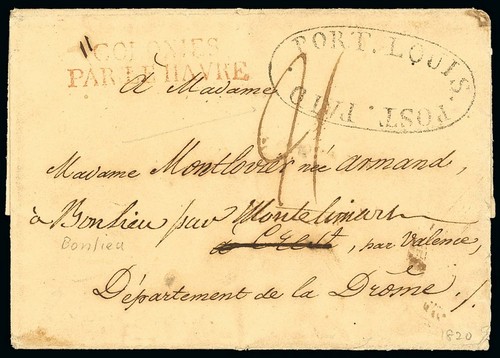 COLONIES
PAR LE HAVRE
PORT. LOUIS.
POST. PAID
à Madame
Madame Montlovier née armand,
à Bonlieu par Montelimart
Bonlieu
à Crest, par Valence,
Département de la Drôme
1820